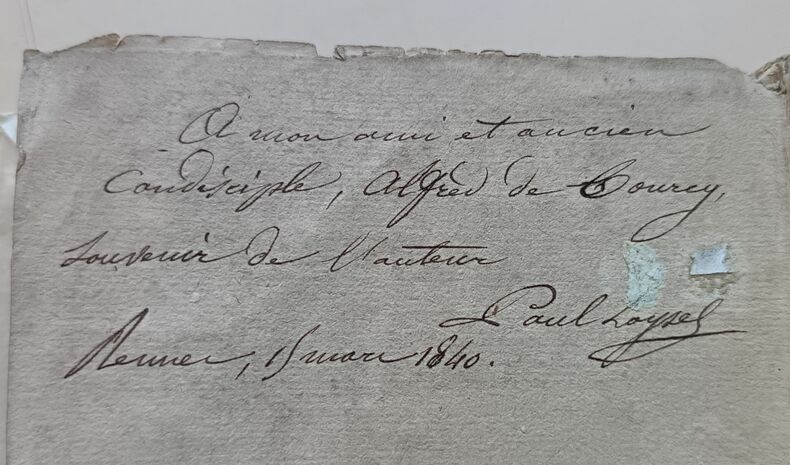 A mon ami et ancien
Condisciple, Alfred de Courcy,
Souvenir de l'auteur
Paul Loysel
Rennes, 15 mars 1840.